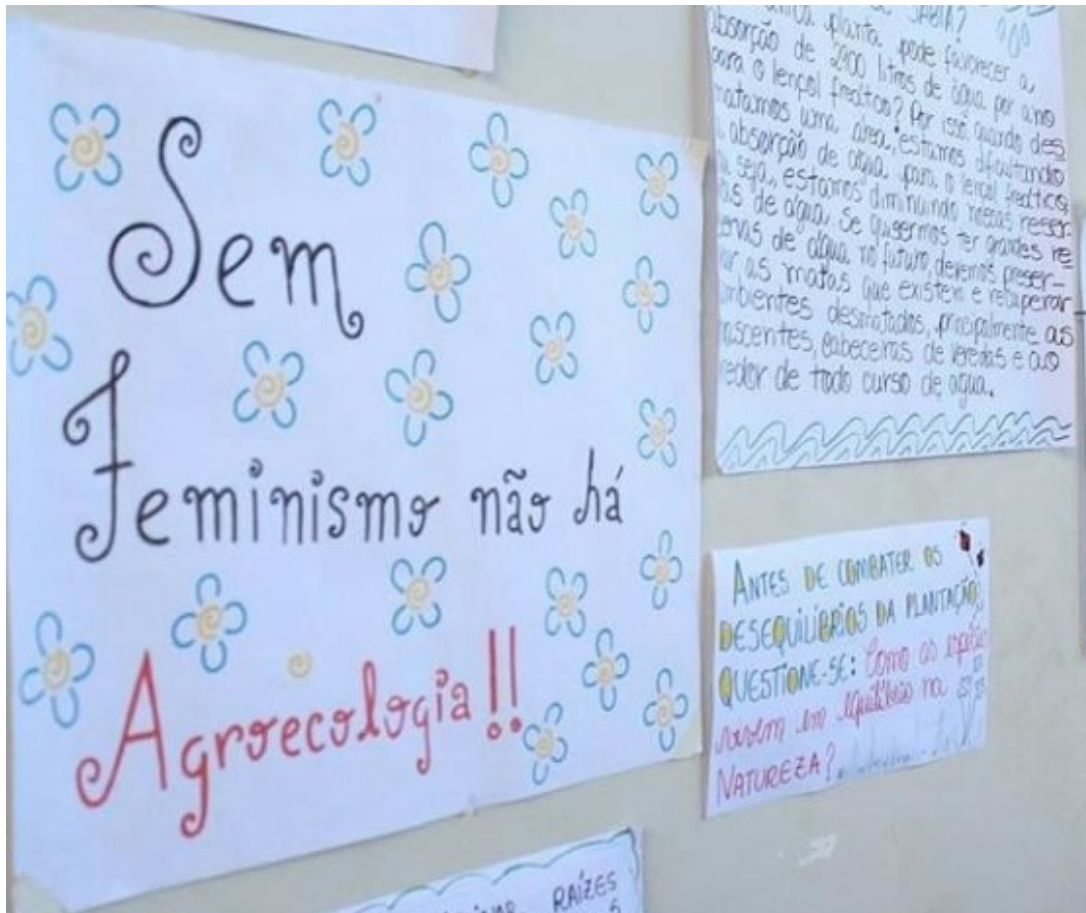 Sem
Feminismo não há
Agroecologia!!
SABIA?
planta pode favorecer a
absorção de 2900 litros de água por ano
para o lençol freático? Por isso quando des
matamos uma área, estamos dificultando
a absorção de água para o lençol freático,
seja, estamos diminuindo nossas reser-
vas de água. Se quisermos ter grandes re
ervas de água no futuro, devemos preser-
var as matas que existem e recuperar
mbientes desmatados, principalmente as
nascentes, cabeceiras de veredas e ao
redor de todo curso de água.
ANTES DE COMBATER OS
DESEQUILÍBRIOS DA PLANTAÇÃO,
QUESTIONE-SE: Como as espécies
vivem em equilíbrio na
NATUREZA?
RAÍZES